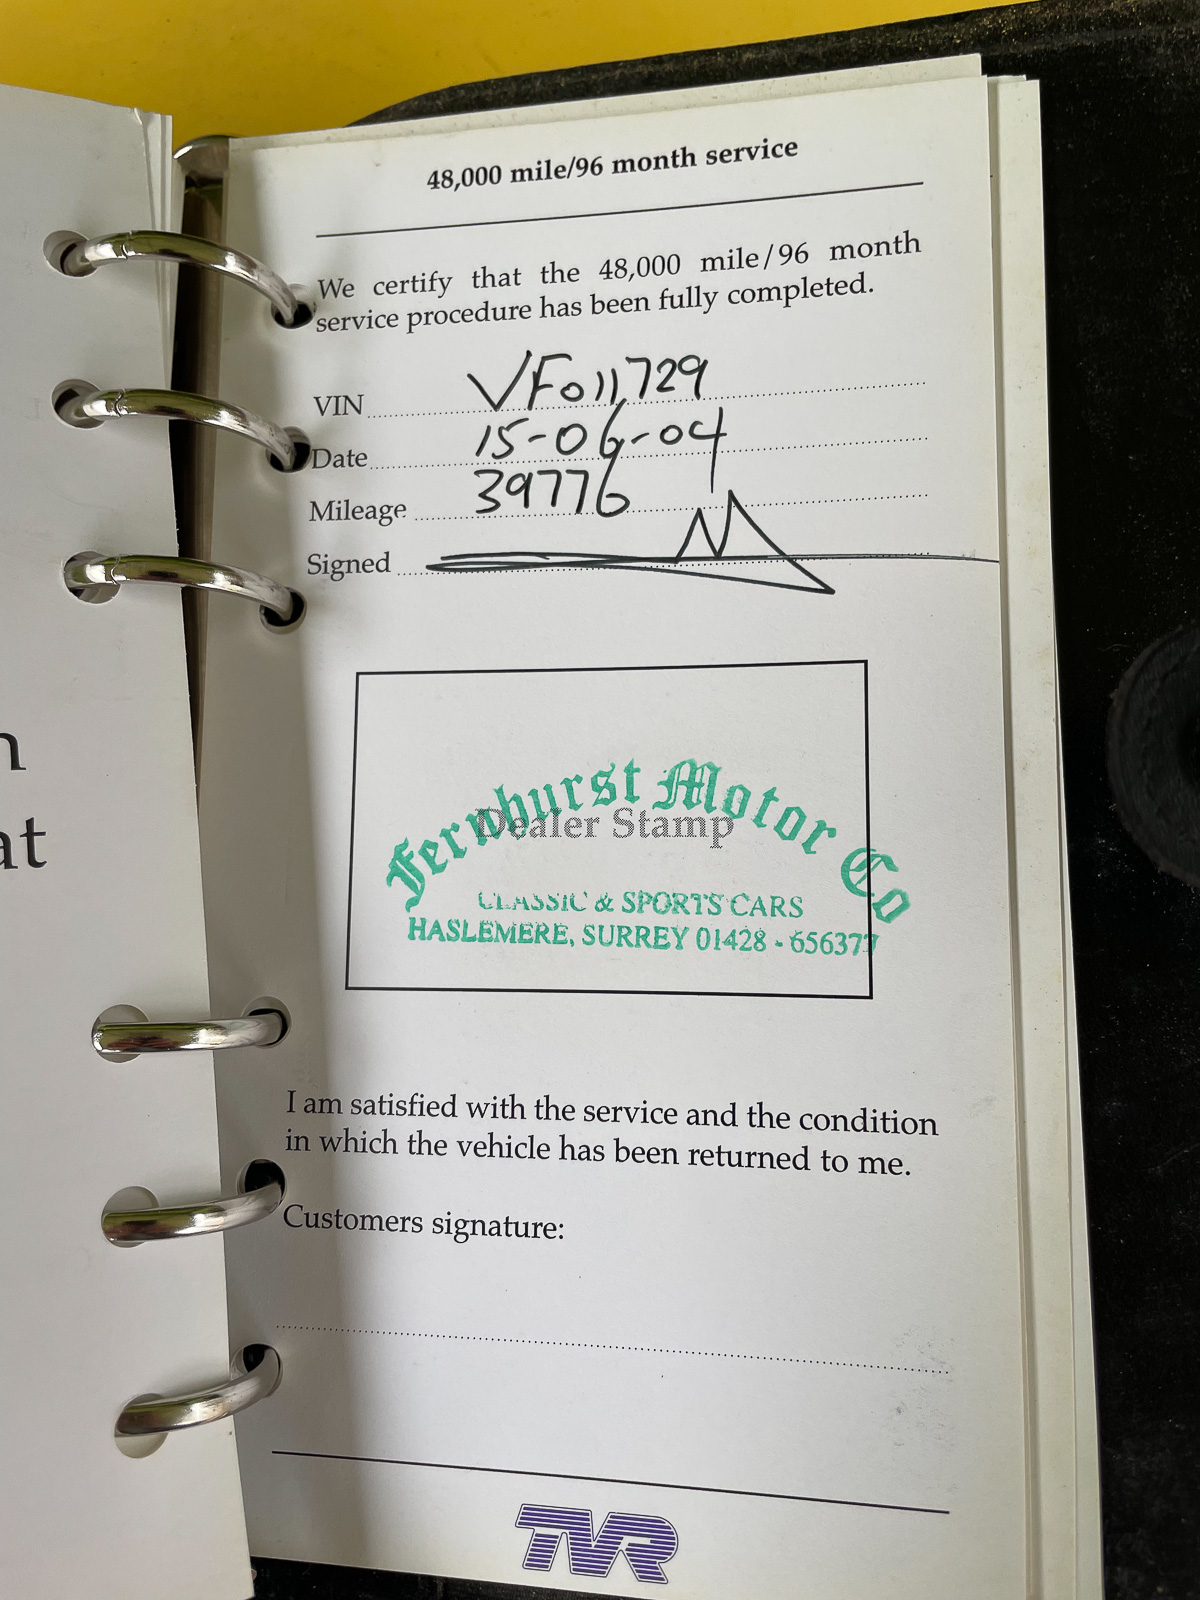 48,000 mile/96 month service
We certify that the 48,000 mile/96 month
service procedure has been fully completed.
VIN VF011729
Date 15-06-04
Mileage 39776
Signed
Fernhurst Motor Co
Dealer Stamp
CLASSIC & SPORTS CARS
HASLEMERE, SURREY 01428 - 656377
I am satisfied with the service and the condition
in which the vehicle has been returned to me.
Customers signature:
TVR